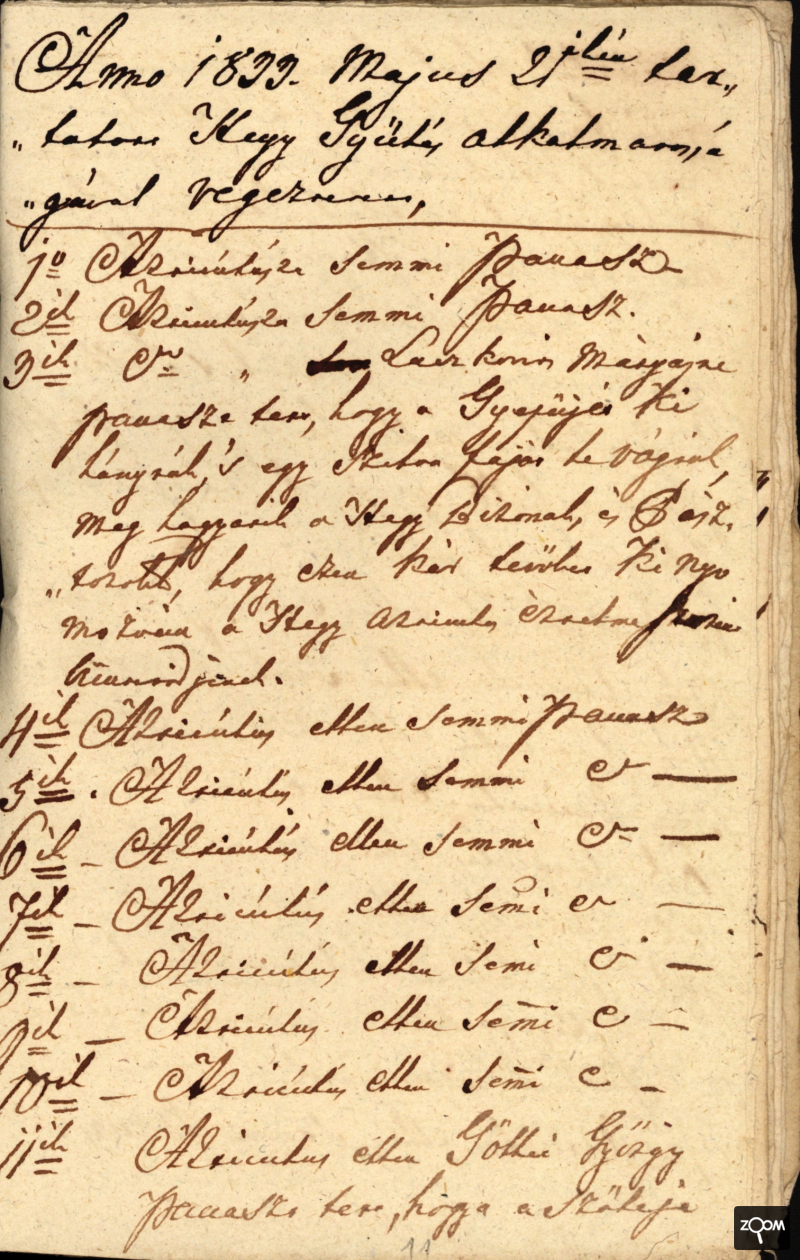 Anno 1833. Majus 21ikén tar„
„tatott Hegy Gyülés alkalmatossá
„gával végeztetett,
1o Articulusra semmi Panasz
2ik Articulusra semmi Panasz.
3ik „ Laczkovics
panaszt tett, hogy a Gyepüjét Ki
hányták, 's egy szilva fáját le vágták,
meg hagyatik a Hegy Birónak, és Pász„
„torok, hogy ezen kár tévőket Ki nyo
mozván a Hegy Articulus
büntetödjenek.
4ik Articulus ellen semmi Panasz
5ik. Articulus ellen semmi —
6ik – Articulus ellen semmi —
7ik – Articulus ellen semi —
8ik – Articulus ellen semi —
9ik – Articulus ellen semi –
10ik – Articulus ellen semi –
11ik Articulus ellen György
Panaszt tett, hogy a szőleje
11
ZOOM